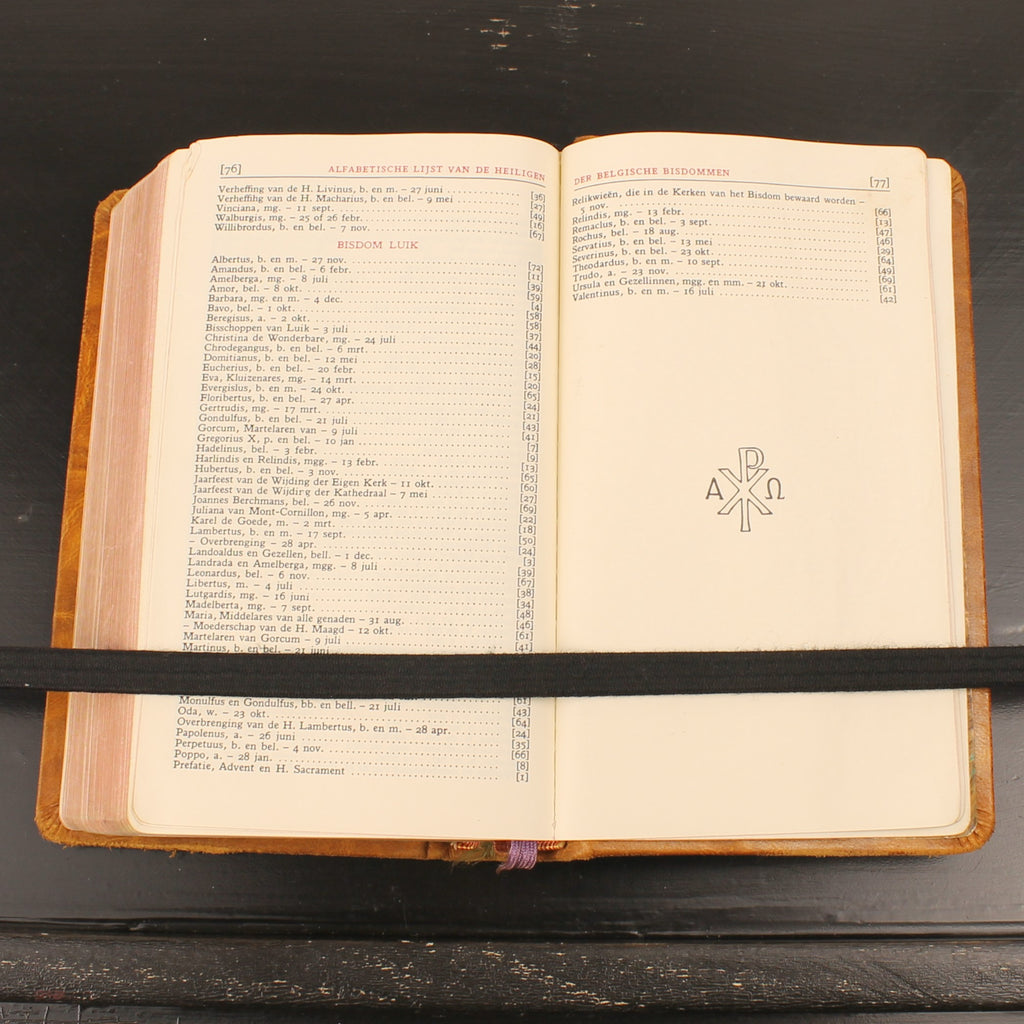 [76] ALFABETISCHE LIJST VAN DE HEILIGEN
Verheffing van de H. Livinus, b. en m. – 27 juni [36]
Verheffing van de H. Macharius, b. en bel. – 9 mei [27]
Vinciana, mg. – 11 sept. [49]
Walburgis, mg. – 25 of 26 febr. [16]
Willibrordus, b. en bel. – 7 nov. [67]
BISDOM LUIK
Albertus, b. en m. – 27 nov. [72]
Amandus, b. en bel. – 6 febr. [11]
Amelberga, mg. – 8 juli [39]
Amor, bel. – 8 okt. [59]
Barbara, mg. en m. – 4 dec. [4]
Bavo, bel. – 1 okt. [58]
Beregisus, a. – 2 okt. [58]
Bisschoppen van Luik – 3 juli [37]
Christina de Wonderbare, mg. – 24 juli [44]
Chrodegangus, b. en bel. – 6 mrt. [20]
Domitianus, b. en bel. – 12 mei [28]
Eucherius, b. en bel. – 20 febr. [15]
Eva, Kluizenares, mg. – 14 mrt. [20]
Evergislus, b. en m. – 24 okt. [65]
Floribertus, b. en bel. – 27 apr. [24]
Gertrudis, mg. – 17 mrt. [21]
Gondulfus, b. en bel. – 21 juli [43]
Gorcum, Martelaren van – 9 juli [41]
Gregorius X, p. en bel. – 10 jan [7]
Hadelinus, bel. – 3 febr. [9]
Harlindis en Relindis, mgg. – 13 febr. [13]
Hubertus, b. en bel. – 3 nov. [65]
Jaarfeest van de Wijding der Eigen Kerk – 11 okt. [60]
Jaarfeest van de Wijding der Kathedraal – 7 mei [27]
Joannes Berchmans, bel. – 26 nov. [69]
Juliana van Mont-Cornillon, mg. – 5 apr. [22]
Karel de Goede, m. – 2 mrt. [18]
Lambertus, b. en m. – 17 sept. [50]
– Overbrenging – 28 apr. [24]
Landoaldus en Gezellen, bell. – 1 dec. [3]
Landrada en Amelberga, mgg. – 8 juli [39]
Leonardus, bel. – 6 nov. [67]
Libertus, m. – 4 juli [38]
Lutgardis, mg. – 16 juni [34]
Madelberta, mg. – 7 sept. [48]
Maria, Middelares van alle genaden – 31 aug. [46]
– Moederschap van de H. Maagd – 12 okt. [61]
Martelaren van Gorcum – 9 juli [41]
Martinus, b. en bel. – 21 juni
Monulfus en Gondulfus, bb. en bell. – 21 juli [43]
Oda, w. – 23 okt. [64]
Overbrenging van de H. Lambertus, b. en m. – 28 apr. [24]
Papolenus, a. – 26 juni [35]
Perpetuus, b. en bel. – 4 nov. [66]
Poppo, a. – 28 jan. [8]
Prefatie, Advent en H. Sacrament [1]
DER BELGISCHE BISDOMMEN [77]
Relikwieën, die in de Kerken van het Bisdom bewaard worden –
5 nov. [66]
Relindis, mg. – 13 febr. [13]
Remaclus, b. en bel. – 3 sept. [47]
Rochus, bel. – 18 aug. [46]
Servatius, b. en bel. – 13 mei [29]
Severinus, b. en bel. – 23 okt. [64]
Theodardus, b. en m. – 10 sept. [49]
Trudo, a. – 23 nov. [69]
Ursula en Gezellinnen, mgg. en mm. – 21 okt. [61]
Valentinus, b. en m. – 16 juli [42]
Α Ω